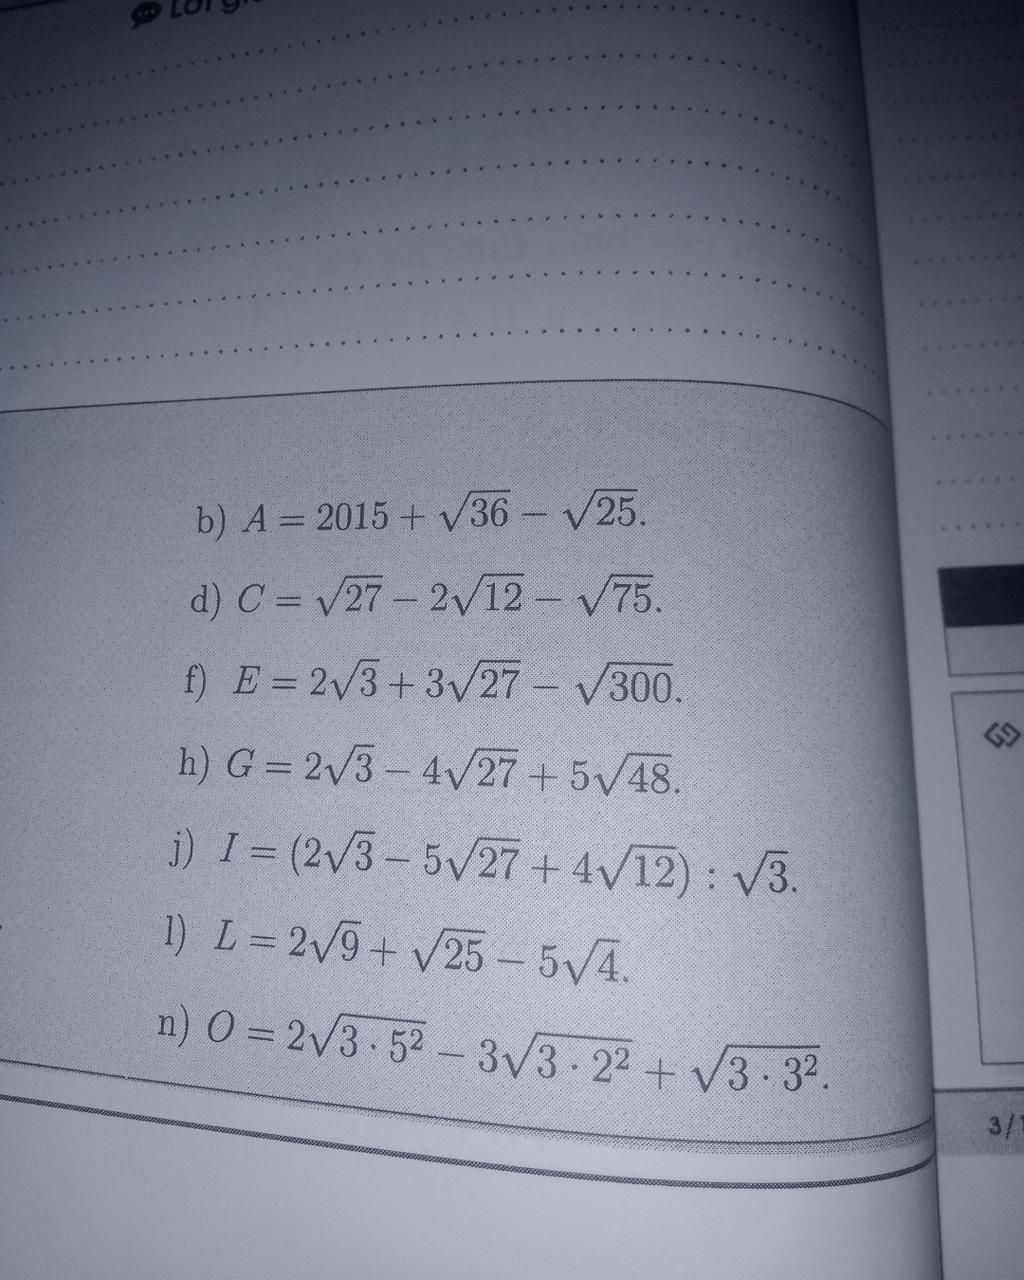 b) A = 2015 + √36 − √25.
d) C = √27 − 2√12 − √75.
f) E = 2√3 + 3√27 − √300.
h) G = 2√3 − 4√27 + 5√48.
j) I = (2√3 − 5√27 + 4√12) : √3.
l) L = 2√9 + √25 − 5√4.
n) O = 2√(3 · 5²) − 3√(3 · 2²) + √(3 · 3²).